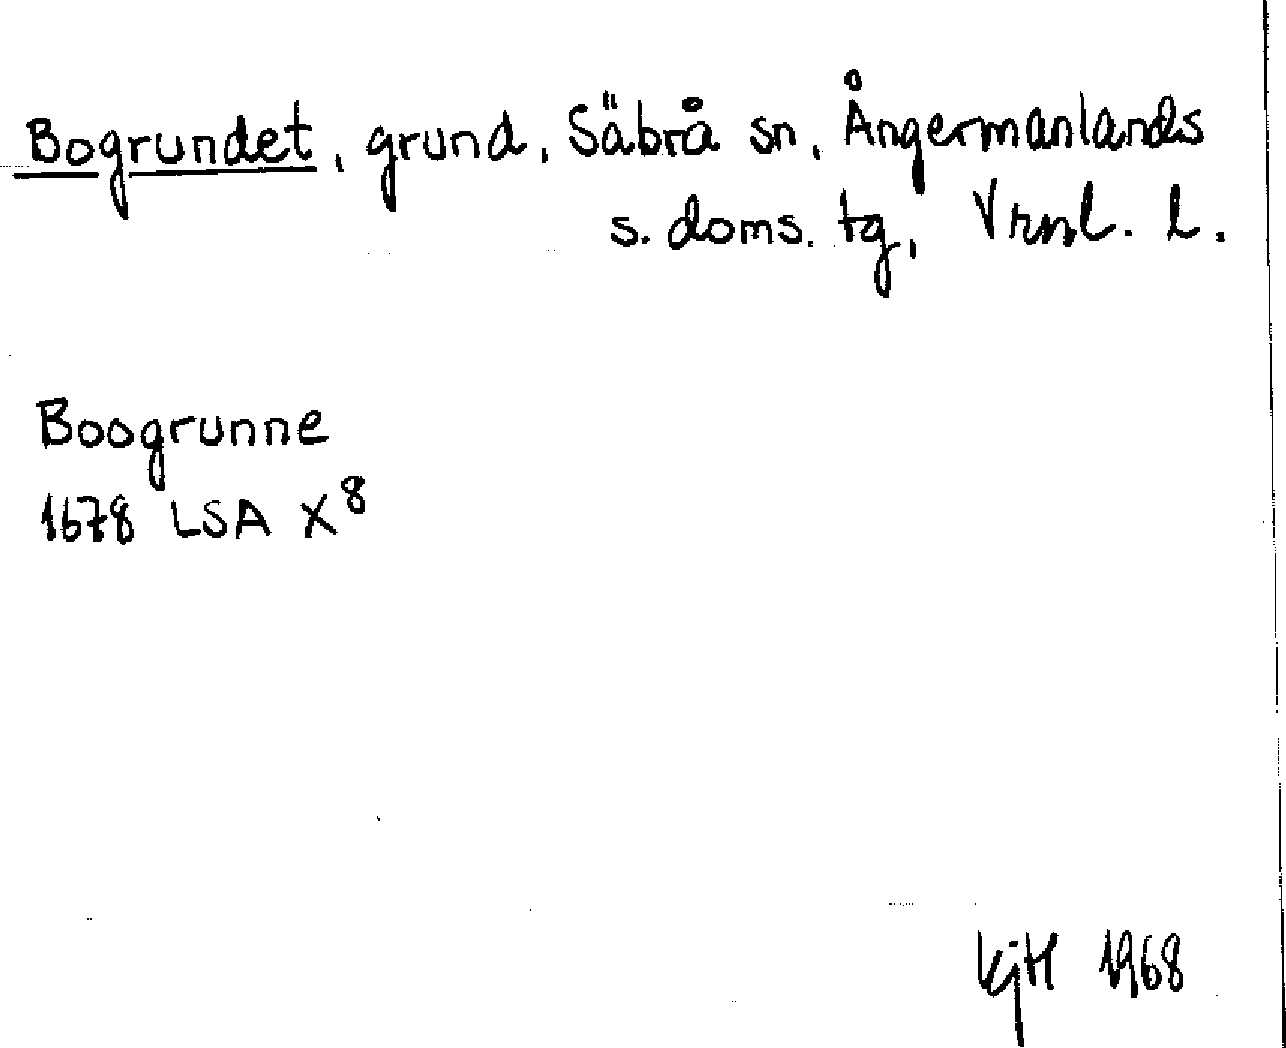 Bogrundet, grund, Säbrå sn, Ångermanlands
s. doms. tg, Vrnl. l.
Boogrunne
1678 LSA X⁸
KjH 1968